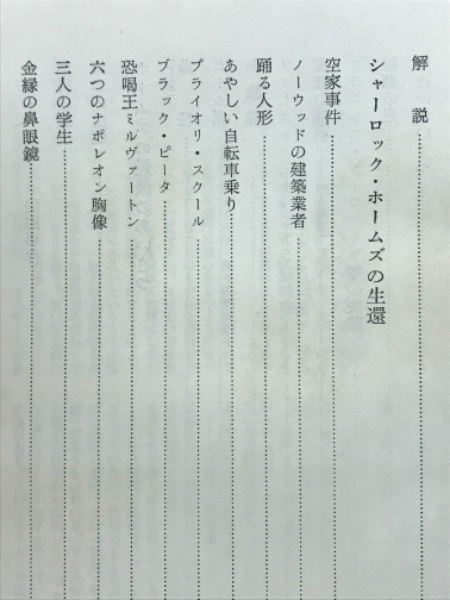 解説
シャーロック・ホームズの生還
空家事件
ノーウッドの建築業者
踊る人形
あやしい自転車乗り
プライオリ・スクール
ブラック・ピータ
恐喝王ミルヴァートン
六つのナポレオン胸像
三人の学生
金縁の鼻眼鏡